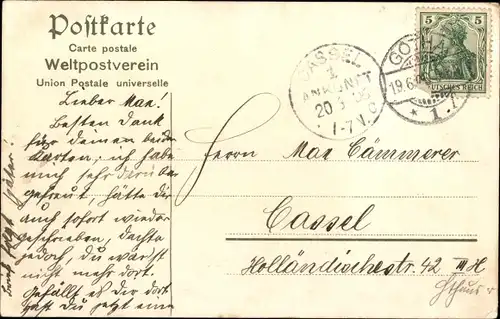 Postkarte
Carte postale
Weltpostverein
Union Postale universelle
Lieber Max!
Besten Dank
für deinen beiden
Karten, ich habe
mich sehr darü ber
gefreut, hätte dir
auch sofort wieder
geschrieben, dachte
jedoch, du wärst
nicht mehr dort.
Gefällt es dir dort
hast du jetzt eine
später!
CASSEL
1
ANKUNFT
20
7-8 V.
GOTHA
19.6.
* 1.
5 5
DEUTSCHES REICH
Herrn Max Cämmerer
Cassel
Holländischestr. 42 III H